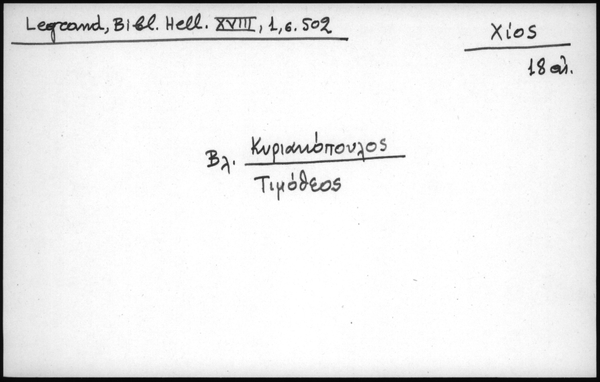 Legrand, Bibl. Hell. XVIII, 1, σ. 502
Χίος
18 αἰ.
Βλ. Κυριακόπουλος
Τιμόθεος